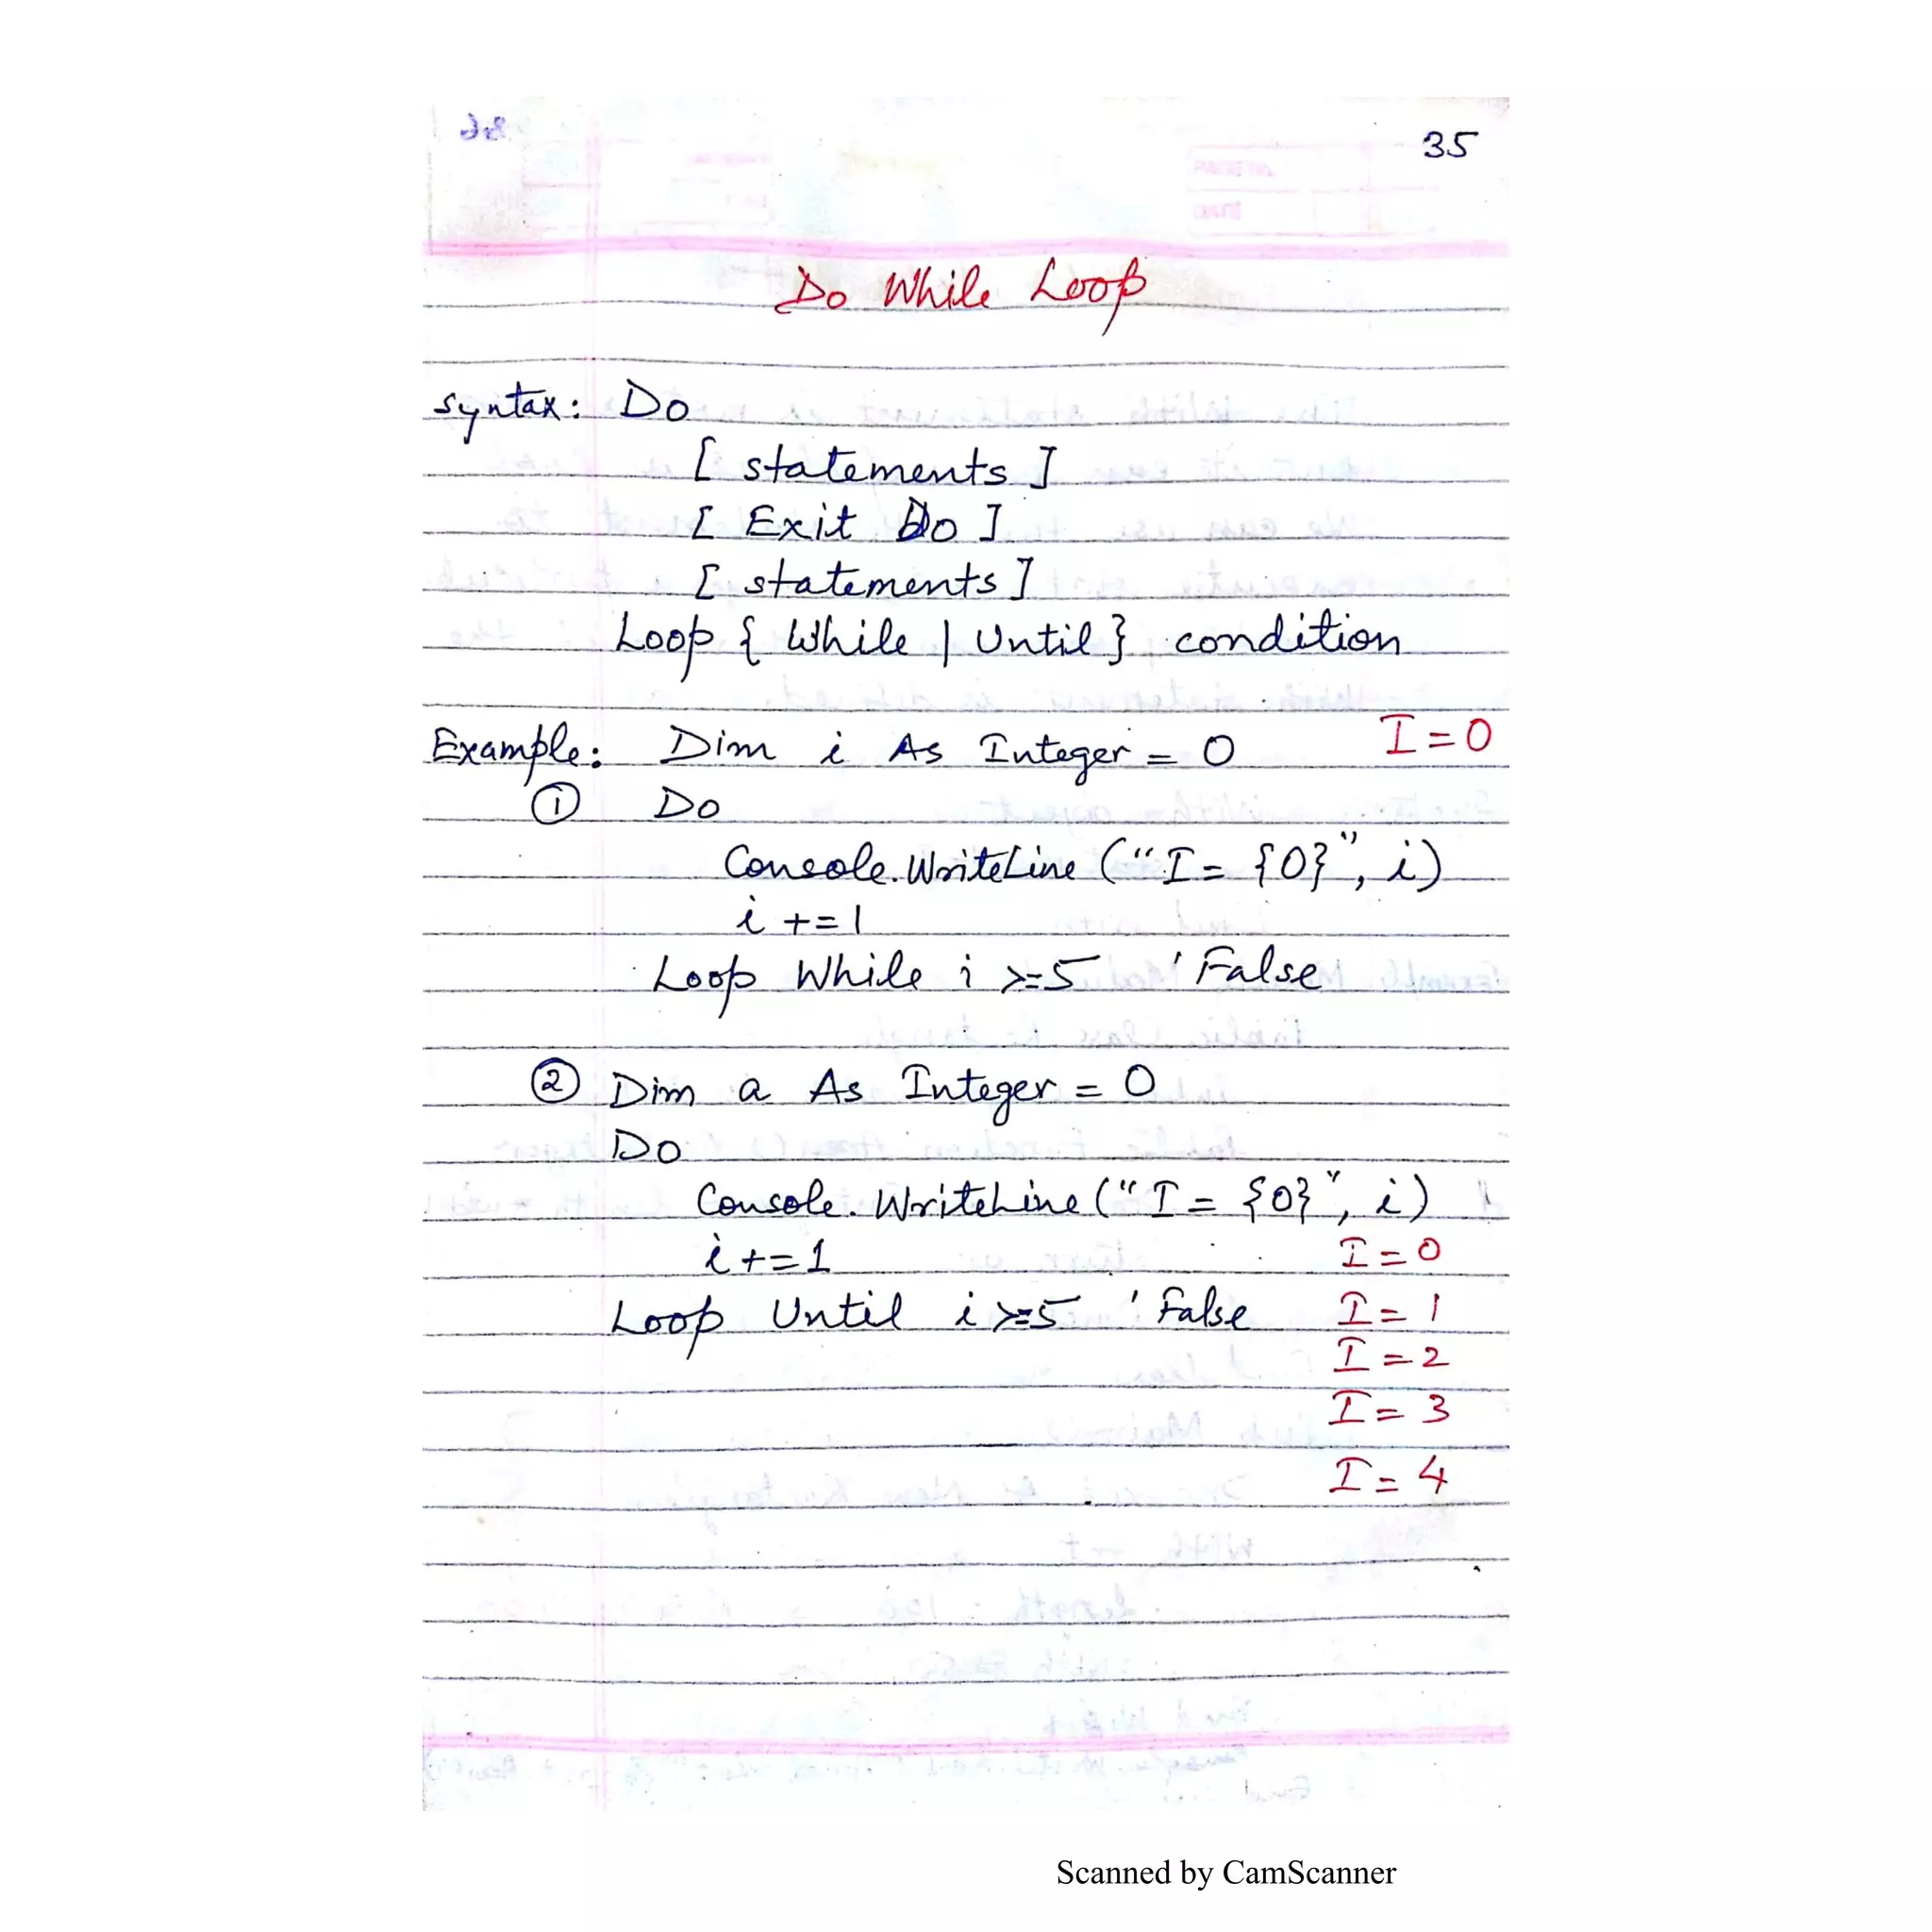 35
Do While Loop
Syntax: Do
[ statements ]
[ Exit Do ]
[ statements ]
Loop { While | Until } condition
Example: Dim i As Integer = 0 I = 0
① Do
Console.WriteLine ("I = {0}", i)
i += 1
Loop While i >= 5 ' False
② Dim a As Integer = 0
Do
Console.WriteLine ("I = {0}", i)
i += 1 I = 0
Loop Until i >= 5 ' False I = 1
I = 2
I = 3
I = 4
Scanned by CamScanner